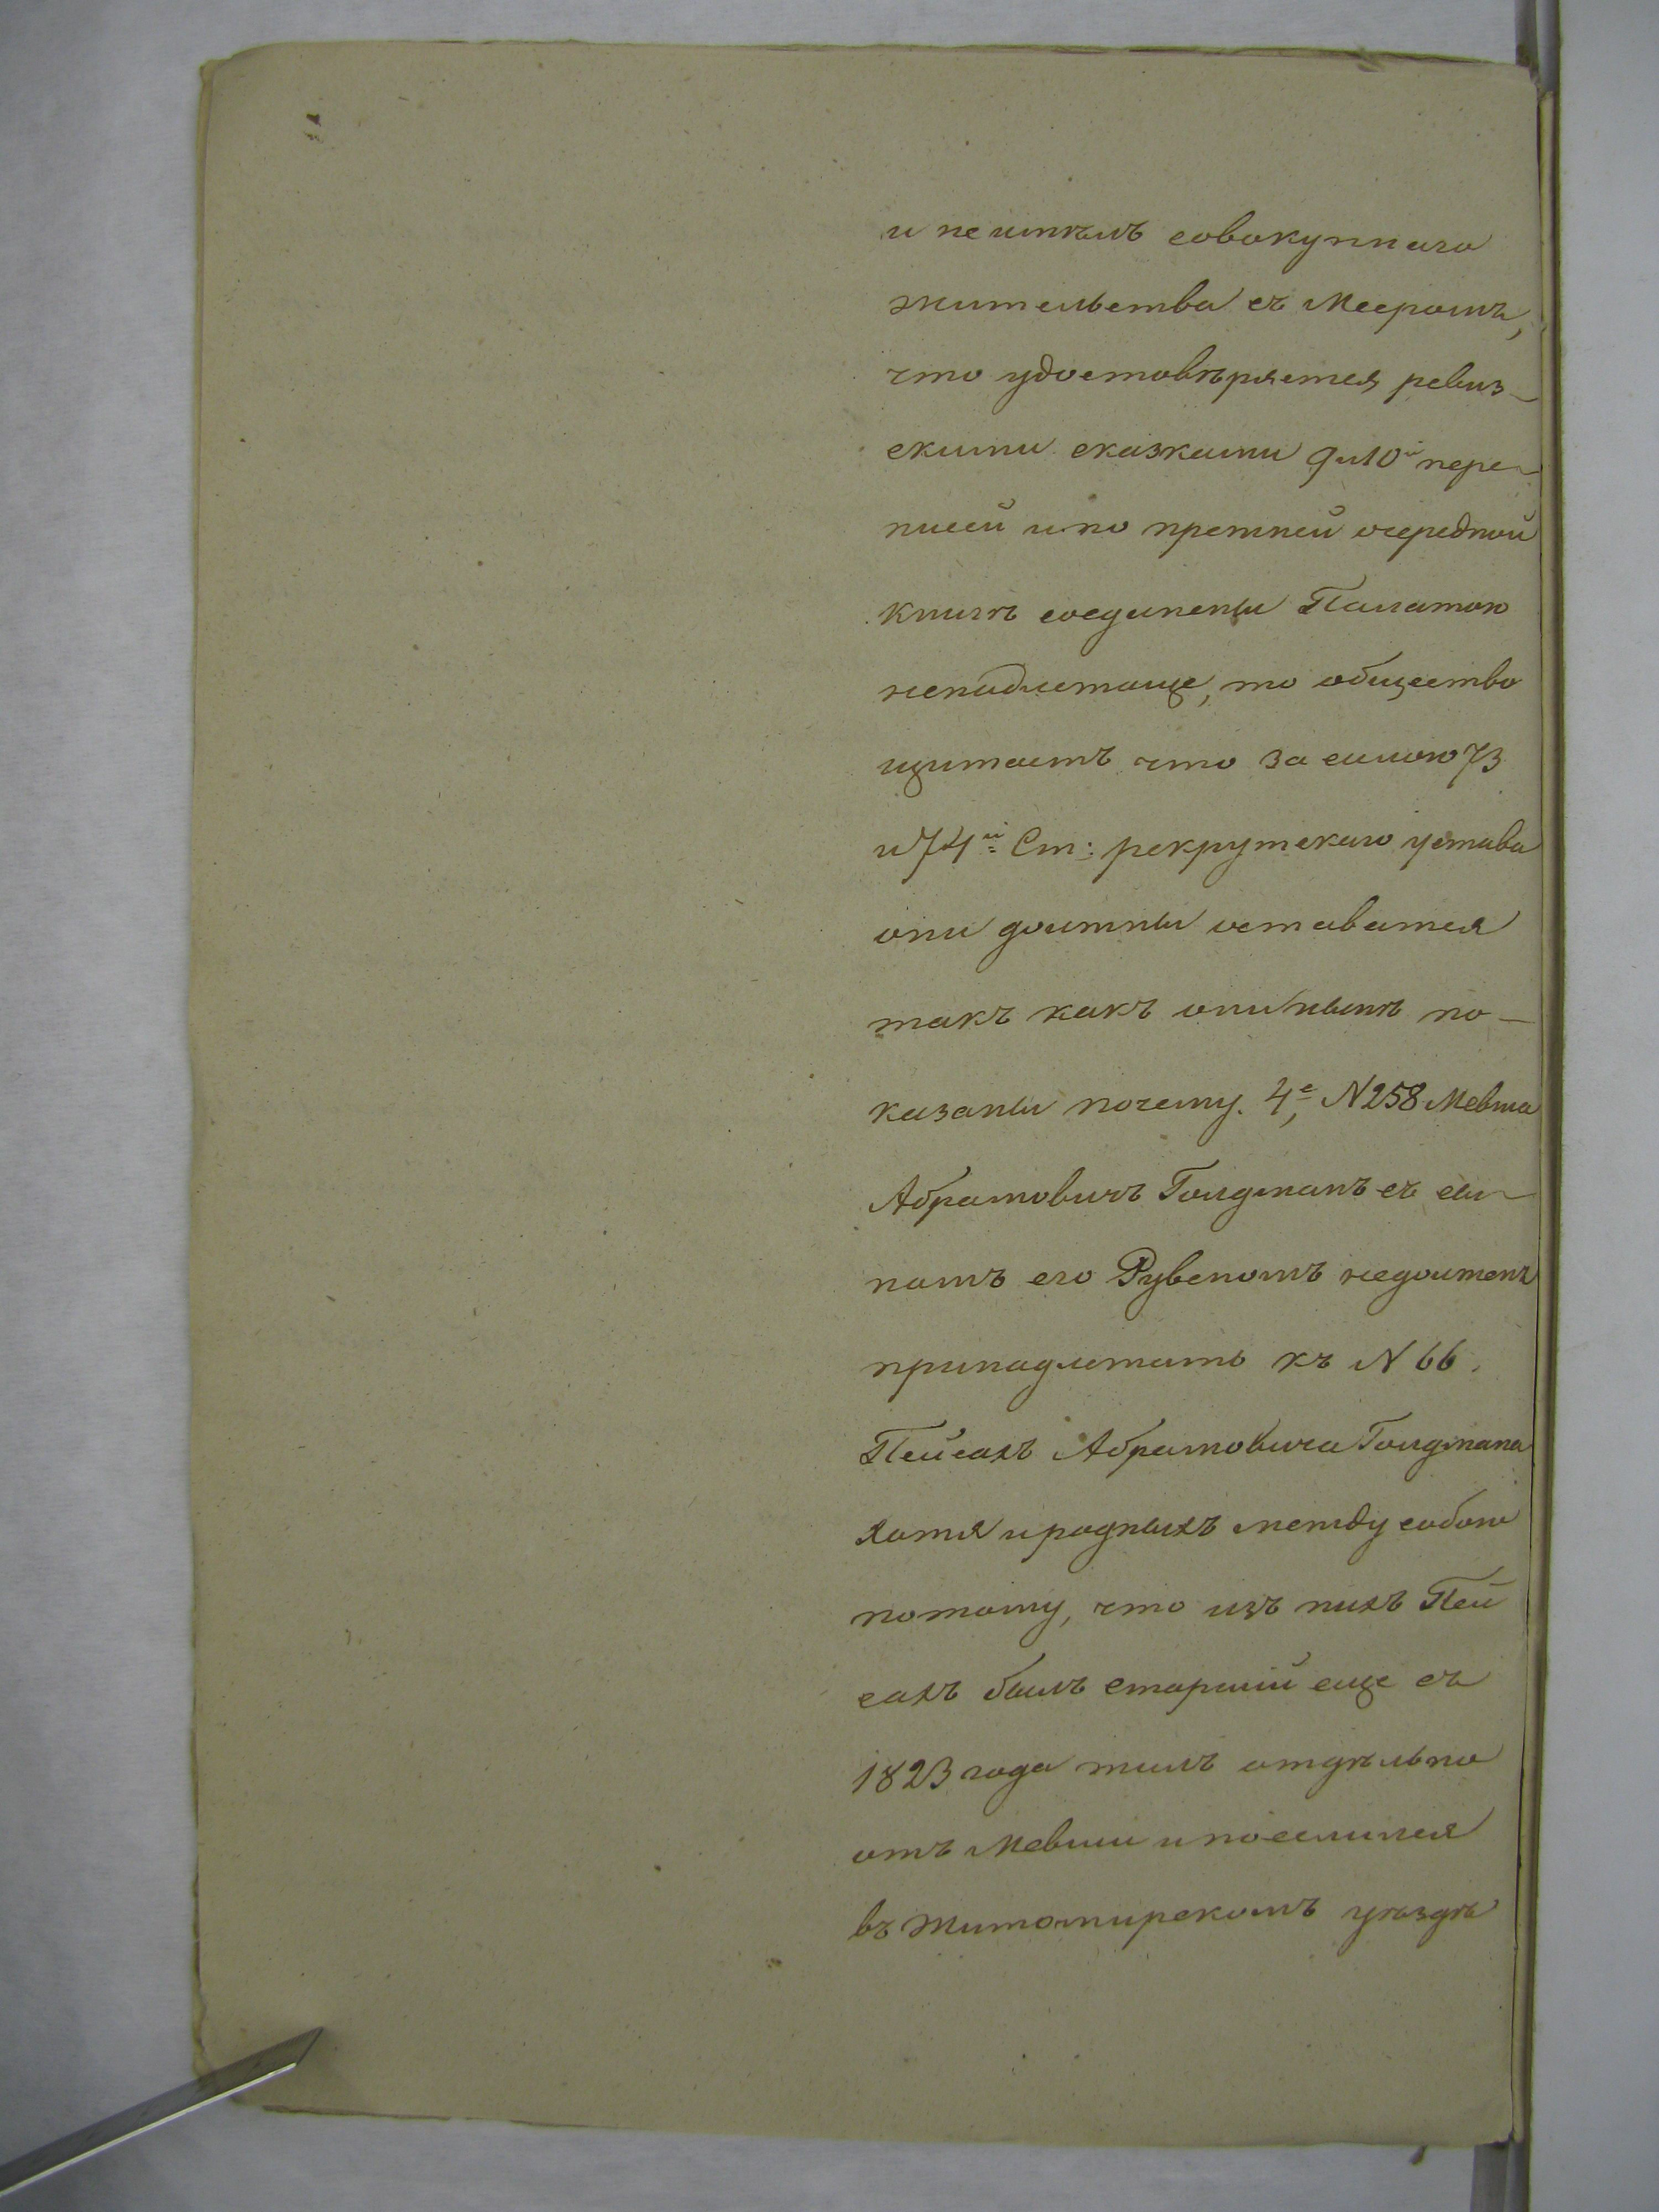 и не имѣлъ совокупнаго
жительства съ Мееромъ,
что удостовѣряется ревиз-
скими сказками 9 и 10й пере-
писей и по прежней очередной
книгѣ соединены Палатою
ненадлежаще, то общество
щитаетъ что за силою 73
и 74й Ст: рекрутскаго устава
они должны оставатся
такъ какъ они нынѣ по-
казаны почему. 4е, N 258 Мевша
Абрамовичъ Голдманъ съ сы-
номъ его Рувеномъ недолженъ
принадлежать къ N 66.
Пейсахъ Абрамовича Голдмана
хотя и родныхъ между собою
потому, что изъ нихъ Пей
сахъ былъ старшій еще съ
1823 года жилъ отдѣльно
отъ Мевши и поселился
въ Житомирскомъ уѣздѣ